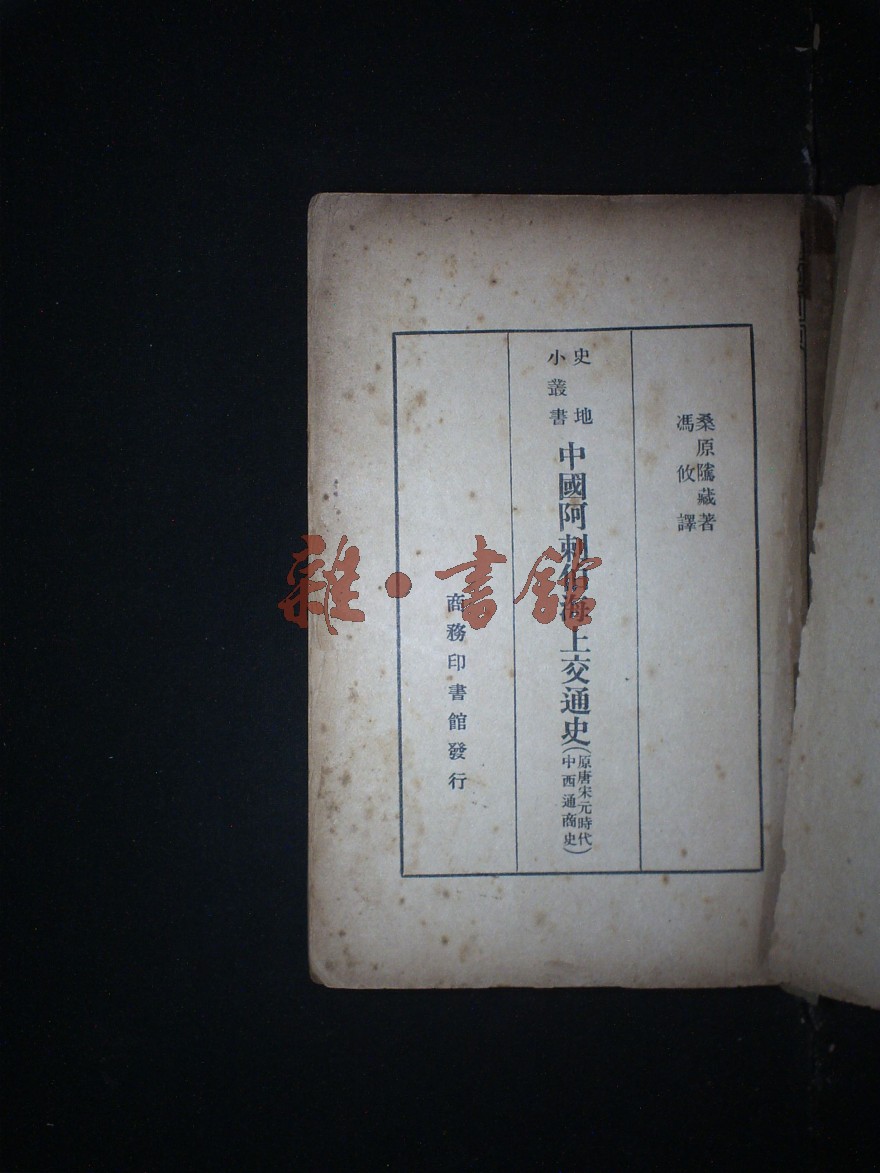 桑原隲藏著
馮攸譯
史地
小叢書
中國阿剌伯海上交通史
(原唐宋元時代
中西通商史)
商務印書館發行
雜·書館